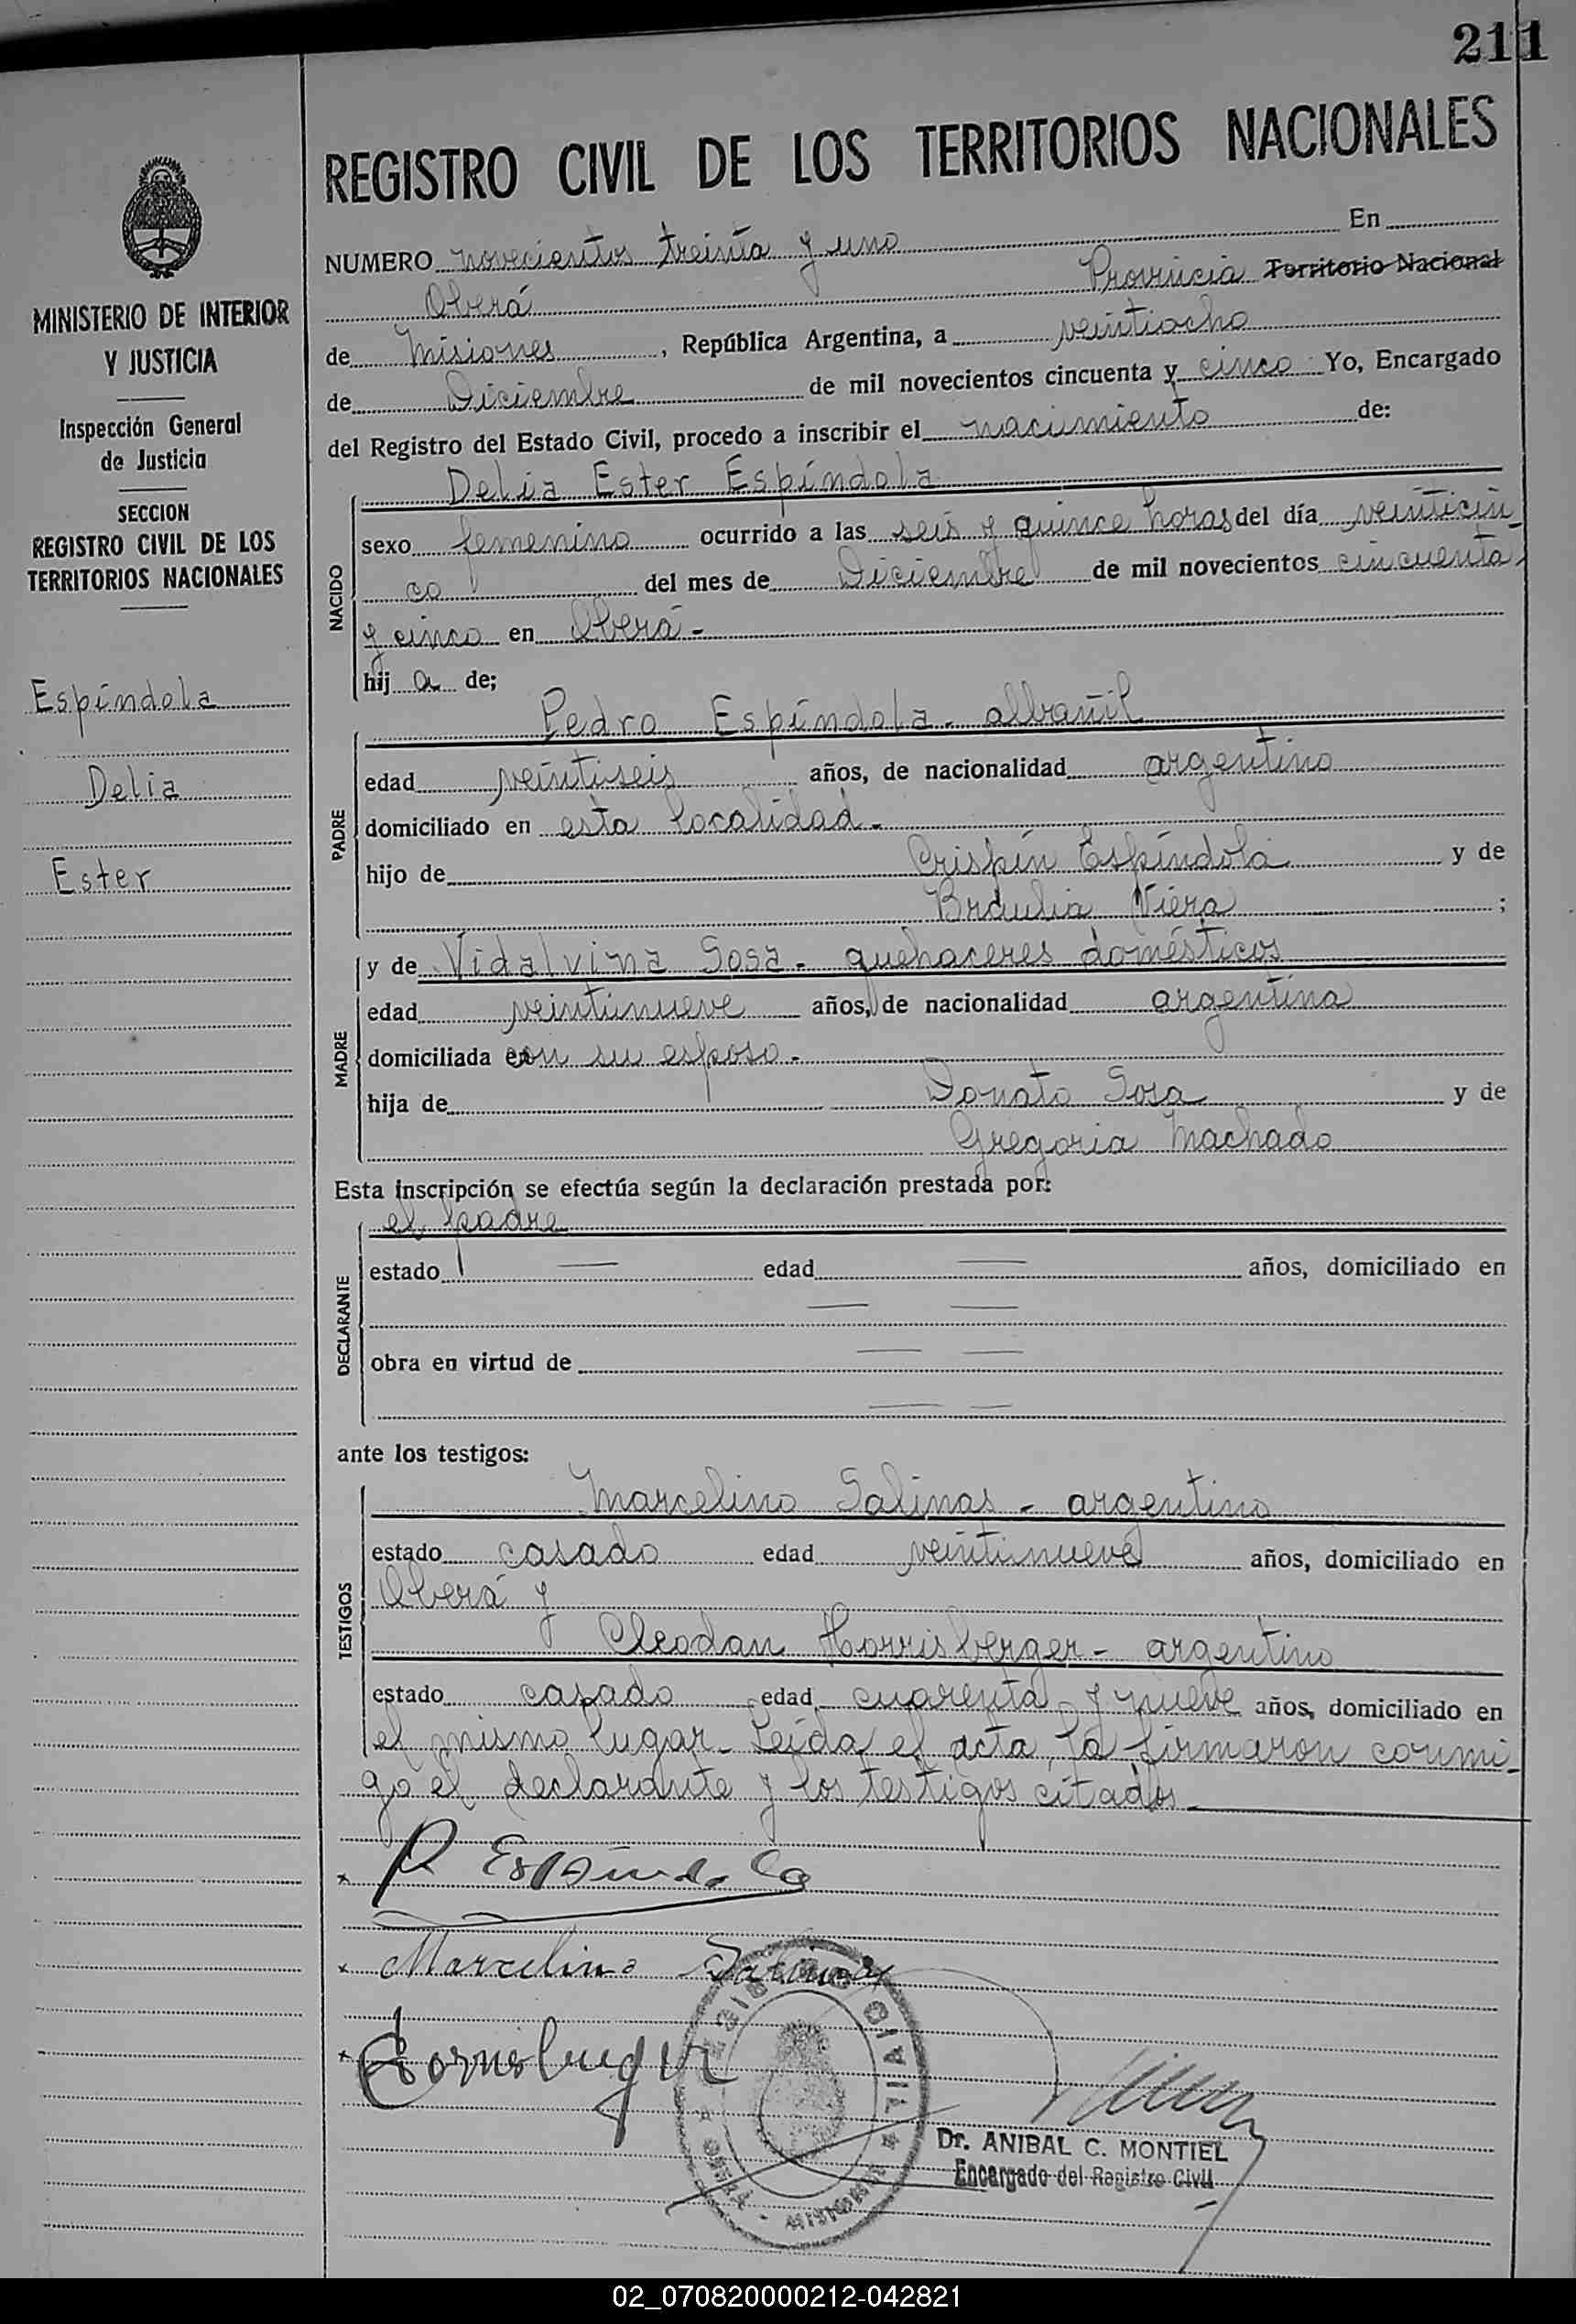 211
REGISTRO CIVIL DE LOS TERRITORIOS NACIONALES
MINISTERIO DE INTERIOR
Y JUSTICIA
Inspección General
de Justicia
SECCION
REGISTRO CIVIL DE LOS
TERRITORIOS NACIONALES
Espíndola
Delia
Ester
NUMERO novecientos treinta y uno En
Oberá Provincia Territorio Nacional
de Misiones, República Argentina, a veintiocho
de Diciembre de mil novecientos cincuenta y cinco Yo, Encargado
del Registro del Estado Civil, procedo a inscribir el nacimiento de:
NACIDO
Delia Ester Espíndola
sexo femenino ocurrido a las seis y quince horas del día veinticin-
co del mes de Diciembre de mil novecientos cincuenta
y cinco en Oberá -
hij a de;
PADRE
Pedro Espíndola - albañil
edad veintiseis años, de nacionalidad argentino
domiciliado en esta localidad -
hijo de Crispín Espíndola y de
Braulia Viera ;
MADRE
y de Vidalvina Sosa - quehaceres domésticos
edad veintinueve años, de nacionalidad argentina
domiciliada con su esposo -
hija de Donato Sosa y de
Gregoria Machado
Esta inscripción se efectúa según la declaración prestada por:
DECLARANTE
el padre
estado — edad — años, domiciliado en
— —
obra en virtud de — —
— —
ante los testigos:
TESTIGOS
Marcelino Salinas - argentino
estado casado edad veintinueve años, domiciliado en
Oberá y
Cleodan Horrisberger - argentino
estado casado edad cuarenta y nueve años, domiciliado en
el mismo lugar - Leída el acta, la firmaron conmi-
go el declarante y los testigos citados -
P Espíndola
Marcelino Salinas
REGISTRO CIVIL
OBERÁ - MISIONES
Dr. ANIBAL C. MONTIEL
Encargado del Registro Civil
02_070820000212-042821